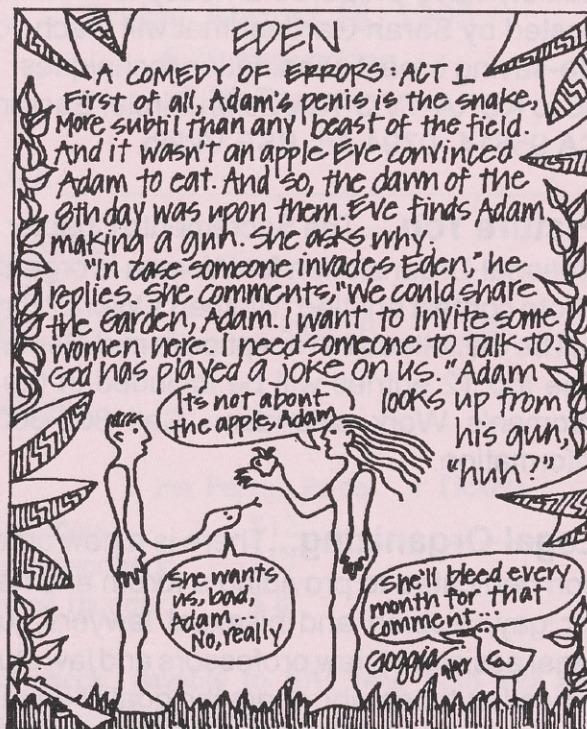 EDEN
A COMEDY OF ERRORS: ACT 1
First of all, Adam's penis is the snake,
More subtil than any beast of the field.
And it wasn't an apple Eve convinced
Adam to eat. And so, the dawn of the
8th day was upon them. Eve finds Adam
making a gun. She asks why.
"In case someone invades Eden," he
replies. She comments, "We could share
the Garden, Adam. I want to invite some
women here. I need someone to talk to.
God has played a joke on us." Adam
looks up from
his gun,
"huh?"
It's not about
the apple, Adam
She wants
us, bad,
Adam.
No, really
She'll bleed every
month for that
comment...
Goggia